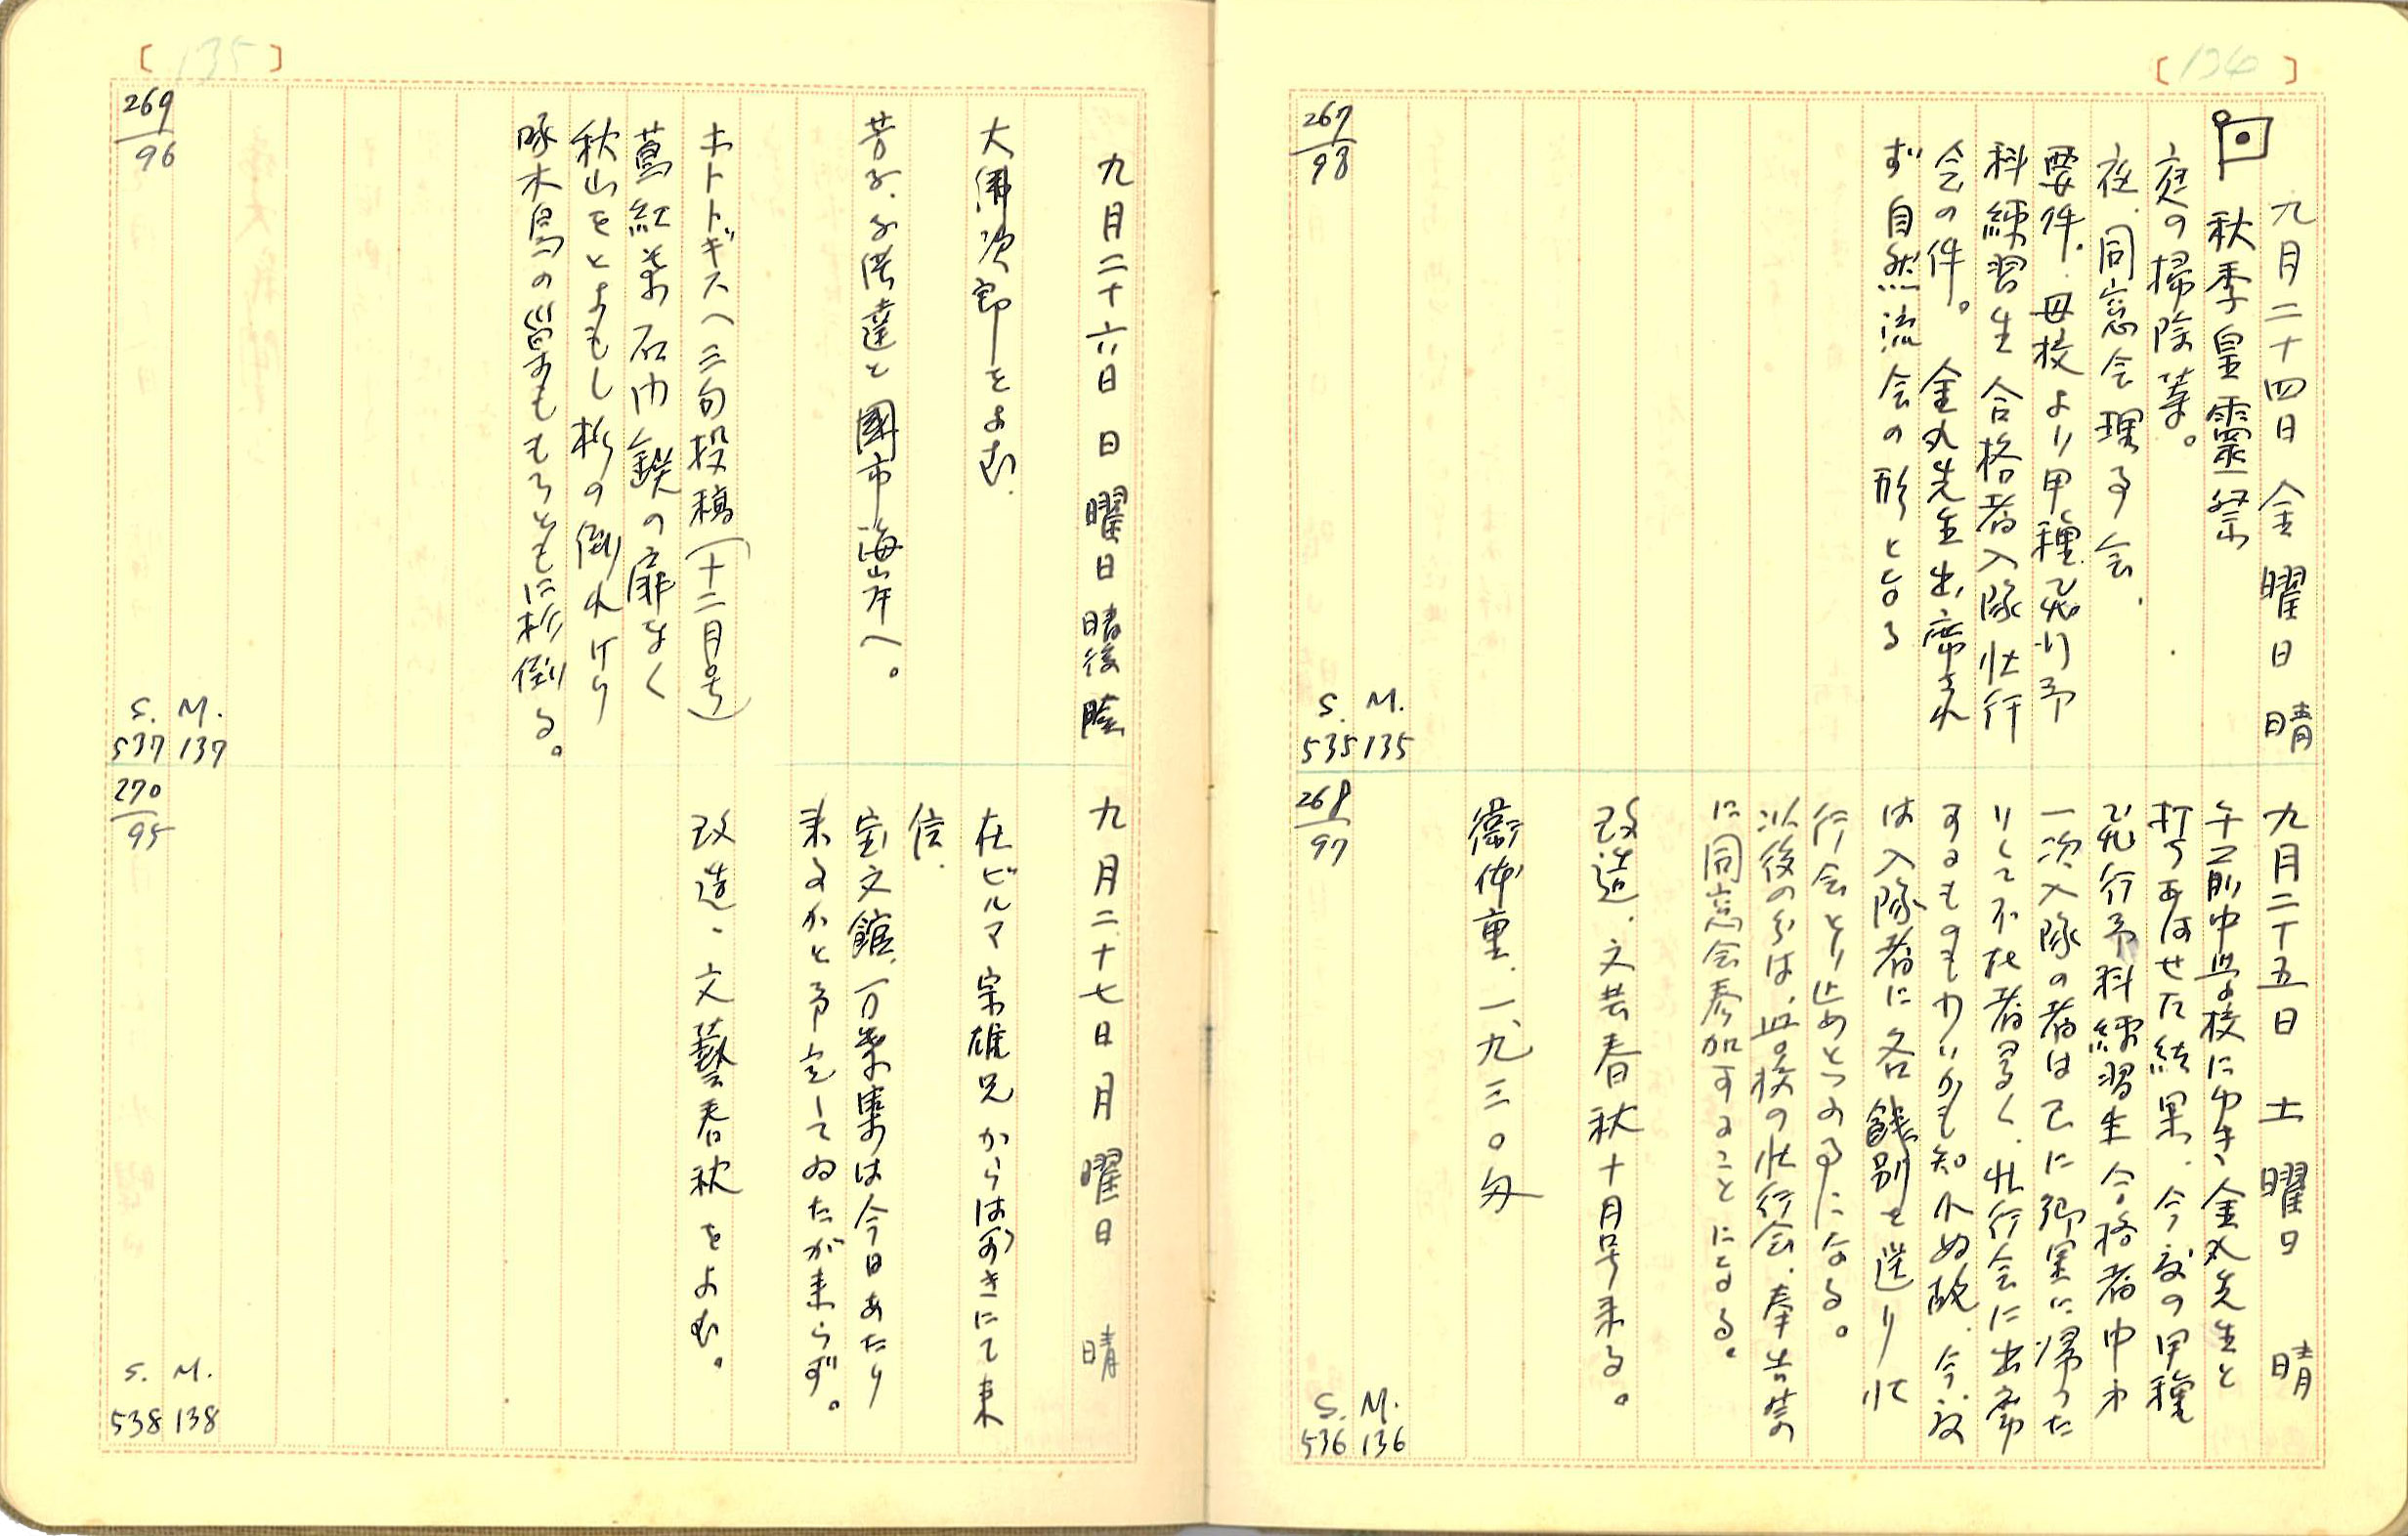 [134]
九月二十四日 金曜日 晴
秋季皇靈祭
庭の掃除等。
夜、同窓会理事会、
要件、母校より甲種飛行予
科練習生合格者入隊壮行
会の件。金丸先生出席され
ず自然流会の形となる
267/98
S. M.
535 135
九月二十五日 土曜日 晴
午前中母校にゆき、金丸先生と
打ちあはせた結果、今度の甲種
飛行予科練習生合格者中オ
一次入隊の者は已に郷里に帰つた
りして不在者多く、壮行会に出席
するものもわづかも知れぬ故、今度
は入隊者に各餞別を送り壮
行会とり止めといふ事になる。
以後の分は、母校の壮行会、奉告祭
に同窓会参加することになる。
改造、文芸春秋十月号来る。
衛体重、一九三〇匁
268/97
S. M.
536 136
[135]
九月二十六日 日曜日 晴後陰
大佛次郎をよむ
芳子、子供達と國市海岸へ。
ホトトギスへ三句投稿(十二月号)
蔦紅葉石門鉄の扉なく
秋山をとよもし杉の倒れけり
啄木鳥の巣ももろともに杉倒る。
269/96
S. M.
537 137
九月二十七日 月曜日 晴
在ビルマ宗雄兄からはがきにて来
信、
宝文館、万葉集は今日あたり
来るかと予定してゐたが来らず。
改造、文藝春秋をよむ。
270/95
S. M.
538 138